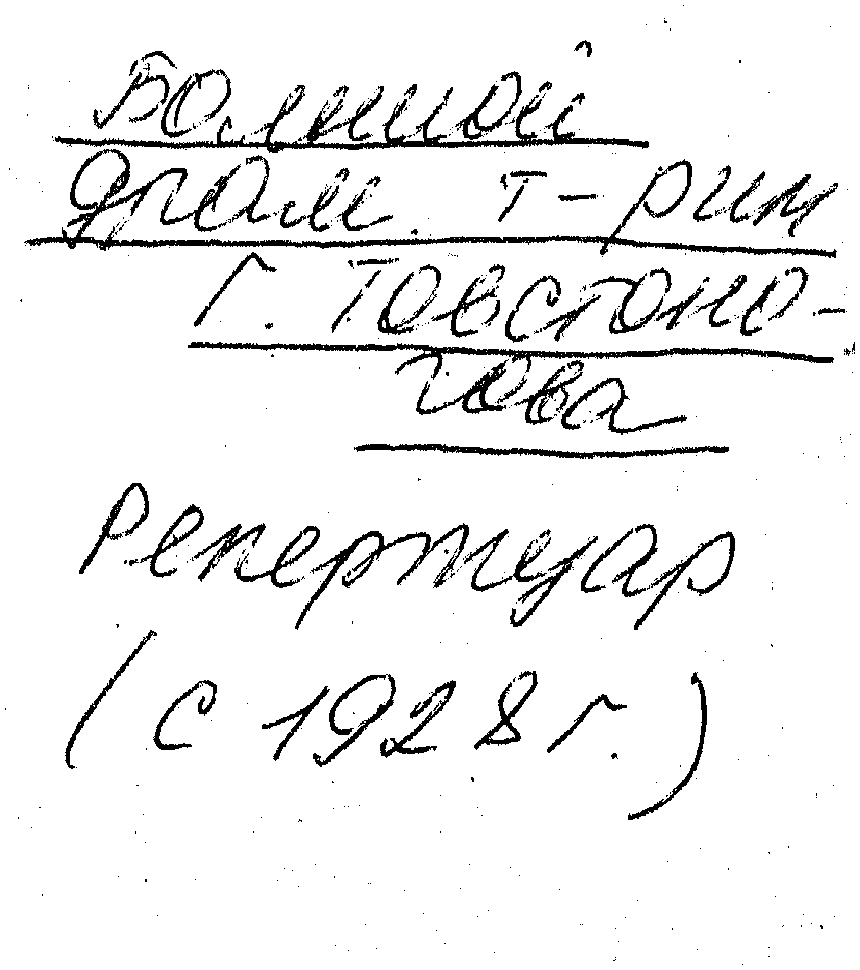 Большой
драм. т-р им
Г. Товстоно-
гова
Репертуар
(с 1928 г.)